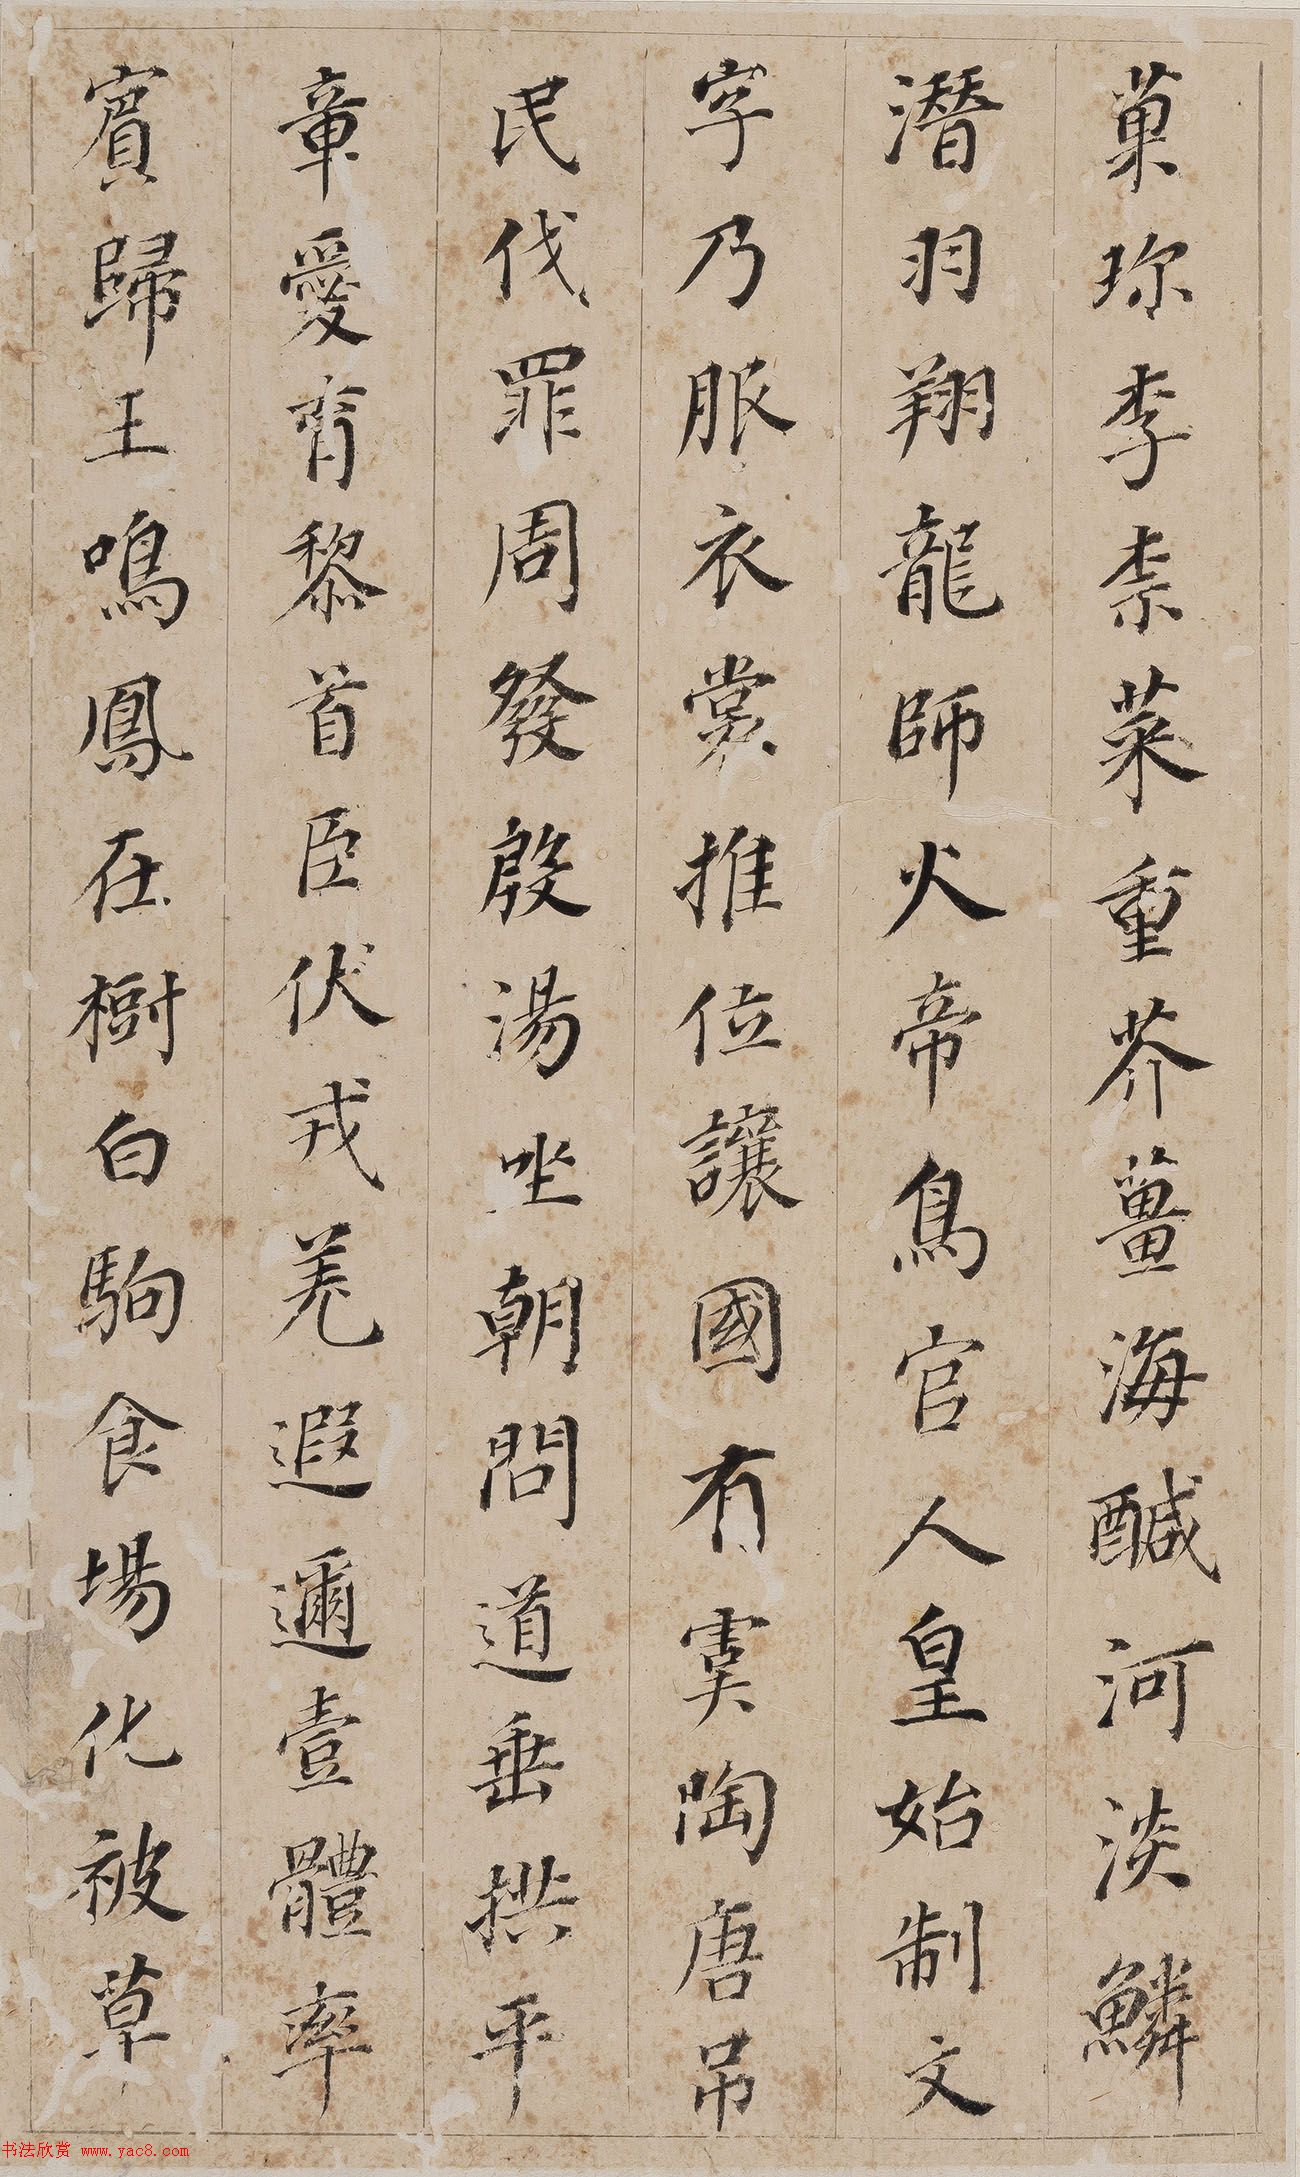 菓珎李柰菜重芥薑海鹹河淡鱗
潛羽翔龍師火帝鳥官人皇始制文
字乃服衣裳推位讓國有虞陶唐吊
民伐罪周發殷湯坐朝問道垂拱平
章愛育黎首臣伏戎羌遐邇壹體率
賓歸王鳴鳳在樹白駒食場化被草
书法欣赏 www.yac8.com